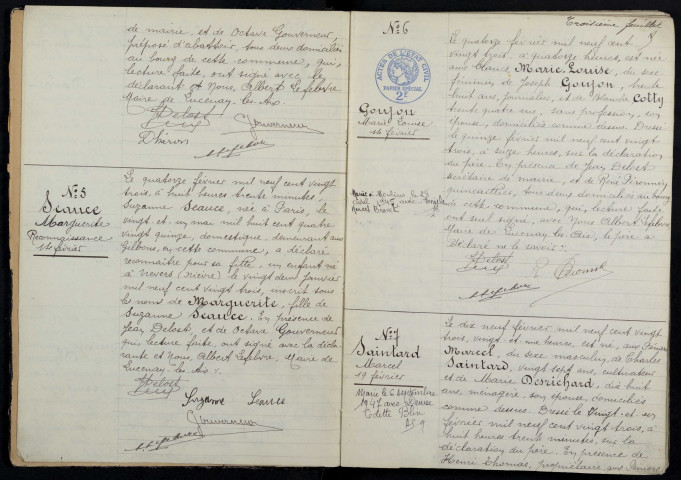 de mairie, et de Octave Gouverneur,
préposé d'abattoir, tous deux domiciliés
au bourg de cette commune, qui,
lecture faite, ont signé avec le
déclarant et Nous, Albert Lefebvre
Maire de Lucenay-les-Aix.
Deloct
Gouverneur
A. Lefebvre
N° 5
Seauce
Marguerite
Reconnaissance
14 février
Le quatorze février mil neuf cent vingt
trois, à huit heures trente minutes,
Suzanne Seauce, née à Paris, le
vingt et un mai mil huit cent quatre
vingt quinze, domestique, demeurant aux
en cette commune, a déclaré
reconnaître pour sa fille, un enfant né
à Nevers (Nièvre) le vingt deux janvier
mil neuf cent vingt trois, inscrit sous
le nom de Marguerite, fille de
Suzanne Seauce. En présence de
Jean Deloct, et de Octave Gouverneur
qui lecture faite, ont signé avec la décla-
rante et Nous, Albert Lefebvre, Maire de
Lucenay-les-Aix.
Deloct
Suzanne Seauce
Gouverneur
A. Lefebvre
Troisième feuillet
N° 6
ACTES DE L'ÉTAT CIVIL
PAPIER SPÉCIAL
2F
Goujon
Marie Louise
14 février
Mariée à Moulins le 23
avril 1945 avec
Marcel
Le quatorze février mil neuf cent
vingt trois, à quatorze heures, est née
aux Marie-Louise, du sexe
féminin, de Joseph Goujon, trente
huit ans, journalier, et de Blanche Cotty
trente quatre ans, sans profession, son
épouse, domiciliés comme dessus. Dressé
le quinze février mil neuf cent vingt
trois, à seize heures, sur la déclaration
du père. En présence de Jean Deloct
secrétaire de mairie, et de René
quincaillier, tous deux domiciliés au bourg
de cette commune, qui, lecture faite
ont seul signé, avec Nous Albert Lefebvre
Maire de Lucenay-les-Aix, le père a
déclaré ne le savoir.
Deloct
A. Lefebvre
N° 7
Saintard
Marcel
19 février
Marié le 6 septembre
1947 avec Denise
Odette Blin
Le dix neuf février mil neuf cent vingt
trois, vingt et une heures, est né, aux
Marcel, du sexe masculin, de Charles
Saintard, vingt sept ans, cultivateur
et de Marie Desrichard, dix huit
ans, ménagère, son épouse, domiciliés
comme dessus. Dressé le Vingt et un
février mil neuf cent vingt trois, à
huit heures trente minutes, sur la
déclaration du père. En présence de
Henri Thomas, propriétaire aux